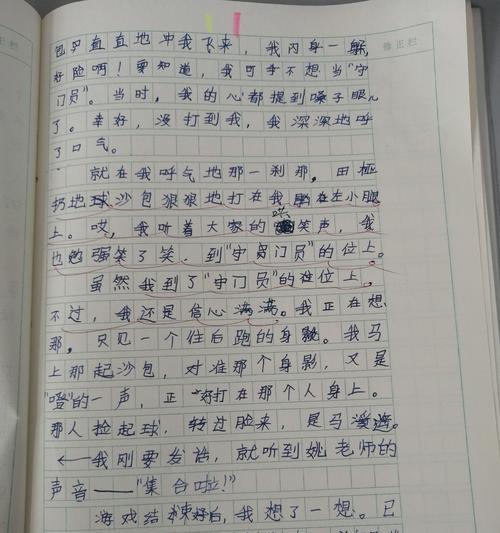 包直直地冲我飞来，我内身一躲，
好险啊！要知道，我可于不想当“守
门员”。当时，我的心都提到嗓子眼儿
了。幸好，没打到我，我深深地呼
了口气。
就在我呼气地那一刹那，田桠
扔地球沙包狠狠地打在我左小腿
上。哎，我听着大家的哄笑声，我
也勉强笑了笑，到“守门员”的位上。
虽然我到了“守门员”的位上。
不过，我还是信心满满。我正在想
那，只见一个往后跑的身影。我马
上那起沙包，对准那个身影，又是
“噔”的一声，正好打在那个人身上。
那人捡起球，转过脸来，是马漫
我刚要发话，就听到姚老师的
声音——“集合啦！”
游戏结束好后，我想了一想。已
修正栏